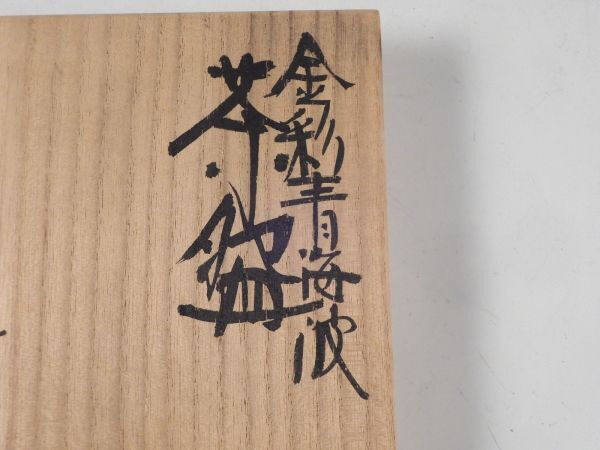 金彩青海波
茶盌